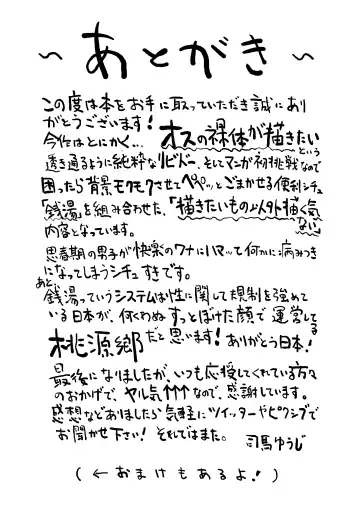 ～あとがき～
この度は本をお手に取っていただき誠にあり
がとうございます!
今作はとにかく… オスの裸体が描きたい という
透き通るように純粋なリビドー、そしてマンガ初挑戦なので
困ったら背景モクモクさせてペペッとごまかせる便利シチュ
「銭湯」を組み合わせた、「描きたいもの以外描く気ない」
内容となっています。
思春期の男子が快楽のワナにハマって何かに病みつき
になってしまうシチュすきです。
あと銭湯っていうシステムは性に関して規制を強めて
いる日本が、何くわぬすっとぼけた顔で運営してる
桃源郷だと思います! ありがとう日本!
最後になりましたが、いつも応援してくれている方々
のおかげで、ヤル気↑↑↑なので、感謝しています。
感想などありましたら気軽にツイッターやピクシブで
お聞かせ下さい! それではまた。 司馬ゆうじ
(←おまけもあるよ!)